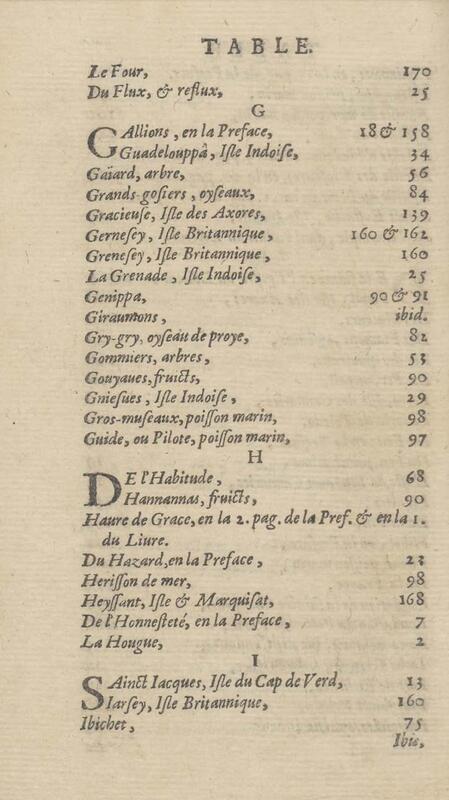 TABLE.
Le Four, 170
Du Flux, & reflux, 25
G
GAllions, en la Preface, 18 & 158
Guadelouppâ, Iſle Indoiſe, 34
Gaïard, arbre, 56
Grands-goſiers, oyſeaux, 84
Gracieuſe, Iſle des Axores, 139
Gerneſey, Iſle Britannique, 160 & 162
Greneſey, Iſle Britannique, 160
La Grenade, Iſle Indoiſe, 25
Genippa, 90 & 91
Giraumons, ibid.
Gry-gry, oyſeau de proye, 82
Gommiers, arbres, 53
Gouyaues, fruicts, 90
Gnieſues, Iſle Indoiſe, 29
Gros-muſeaux, poiſſon marin, 98
Guide, ou Pilote, poiſſon marin, 97
H
DE l'Habitude, 68
Hannannas, fruicts, 90
Haure de Grace, en la 2. pag. de la Pref. & en la 1.
du Liure.
Du Hazard, en la Preface, 23
Heriſſon de mer, 98
Heyſſant, Iſle & Marquiſat, 168
De l'Honneſteté, en la Preface, 7
La Hougue, 2
I
SAinct Iacques, Iſle du Cap de Verd, 13
Iarſey, Iſle Britannique, 160
Ibichet, 75
Ibis,